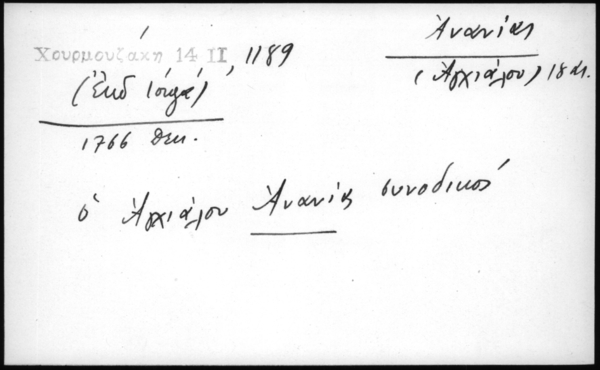 Χουρμουζάκη 14 II, 1189
Ἀνανίας
(Ἀγχιάλου) 18 αι.
(Ἐκδ Ἰόργα)
1766 Δεκ.
ὁ Ἀγχιάλου Ἀνανίας συνοδικός